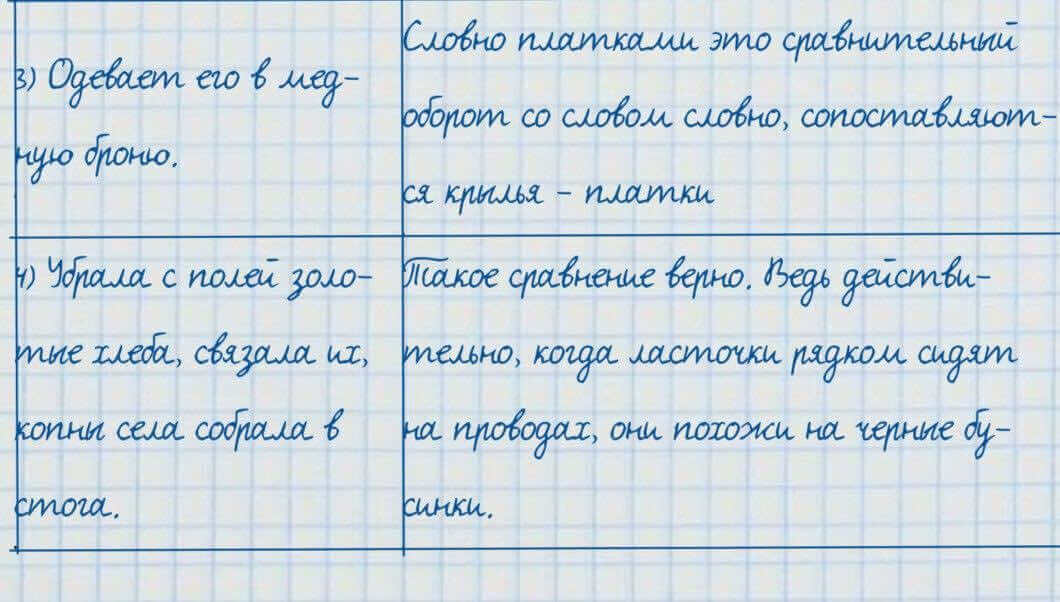 3) Одевает его в мед-
ную броню.
Словно платками это сравнительный
оборот со словом словно, сопоставляют-
ся крылья - платки
4) Убрала с полей золо-
тые хлеба, связала их,
копны села собрала в
стога.
Такое сравнение верно. Ведь действи-
тельно, когда ласточки рядком сидят
на проводах, они похожи на черные бу-
синки.